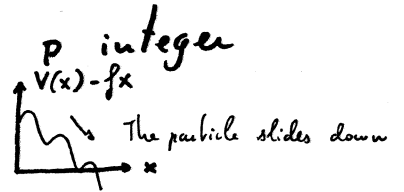 p integer
V(x) - fx
The particle slides down
x